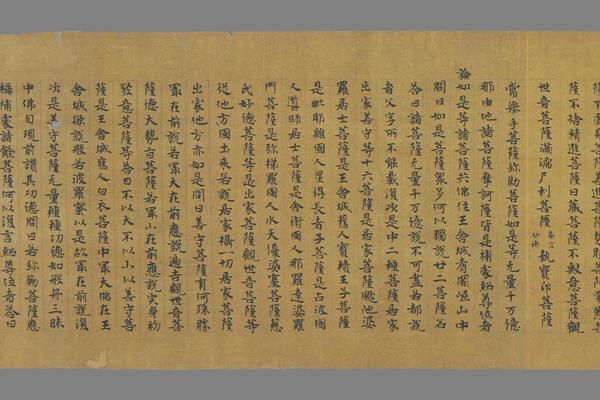 薩不捨精進菩薩日藏菩薩不缺意菩薩觀
世音菩薩滿濡尸利菩薩秦言妙德執寶印菩薩
常舉手菩薩弥勒菩薩如是等无量千万億
那由他諸菩薩摩訶薩皆是補處紹尊位者
論如是等諸菩薩共佛住王舍城耆闍崛山中
問曰如是菩薩眾多何以獨說廿二菩薩名
答曰諸菩薩无量千万億說不可盡若都說
者文字所不能載復次是中二種菩薩居家
出家善守等十六菩薩是居家菩薩颰陁婆
羅居士菩薩是王舍城舊人寶積王子菩薩
是毗耶離國人星得長者子菩薩是占波國
人導師居士菩薩是舍衛國人那羅達婆羅
門菩薩是弥梯羅國人水天優婆塞菩薩慈
氏妙德菩薩等是出家菩薩觀世音菩薩等
從他方國土來若說居家攝一切居家菩薩
出家他方亦如是問曰善守菩薩有何殊勝
冣在前說若冣大在前應說遍吉觀世音菩
薩德大勢菩薩若冣小在前應說宍身初
發意菩薩等答曰不以大不以小以善守菩
薩是王舍城舊人白衣菩薩中冣大佛在王
舍城欲說般若波羅蜜以是故冣在前說復
次是善守菩薩无量種種功德如般舟三昧
中佛自現前讚其功德問曰若弥勒菩薩應
稱補處諸餘菩薩何以復言紹尊位者答曰